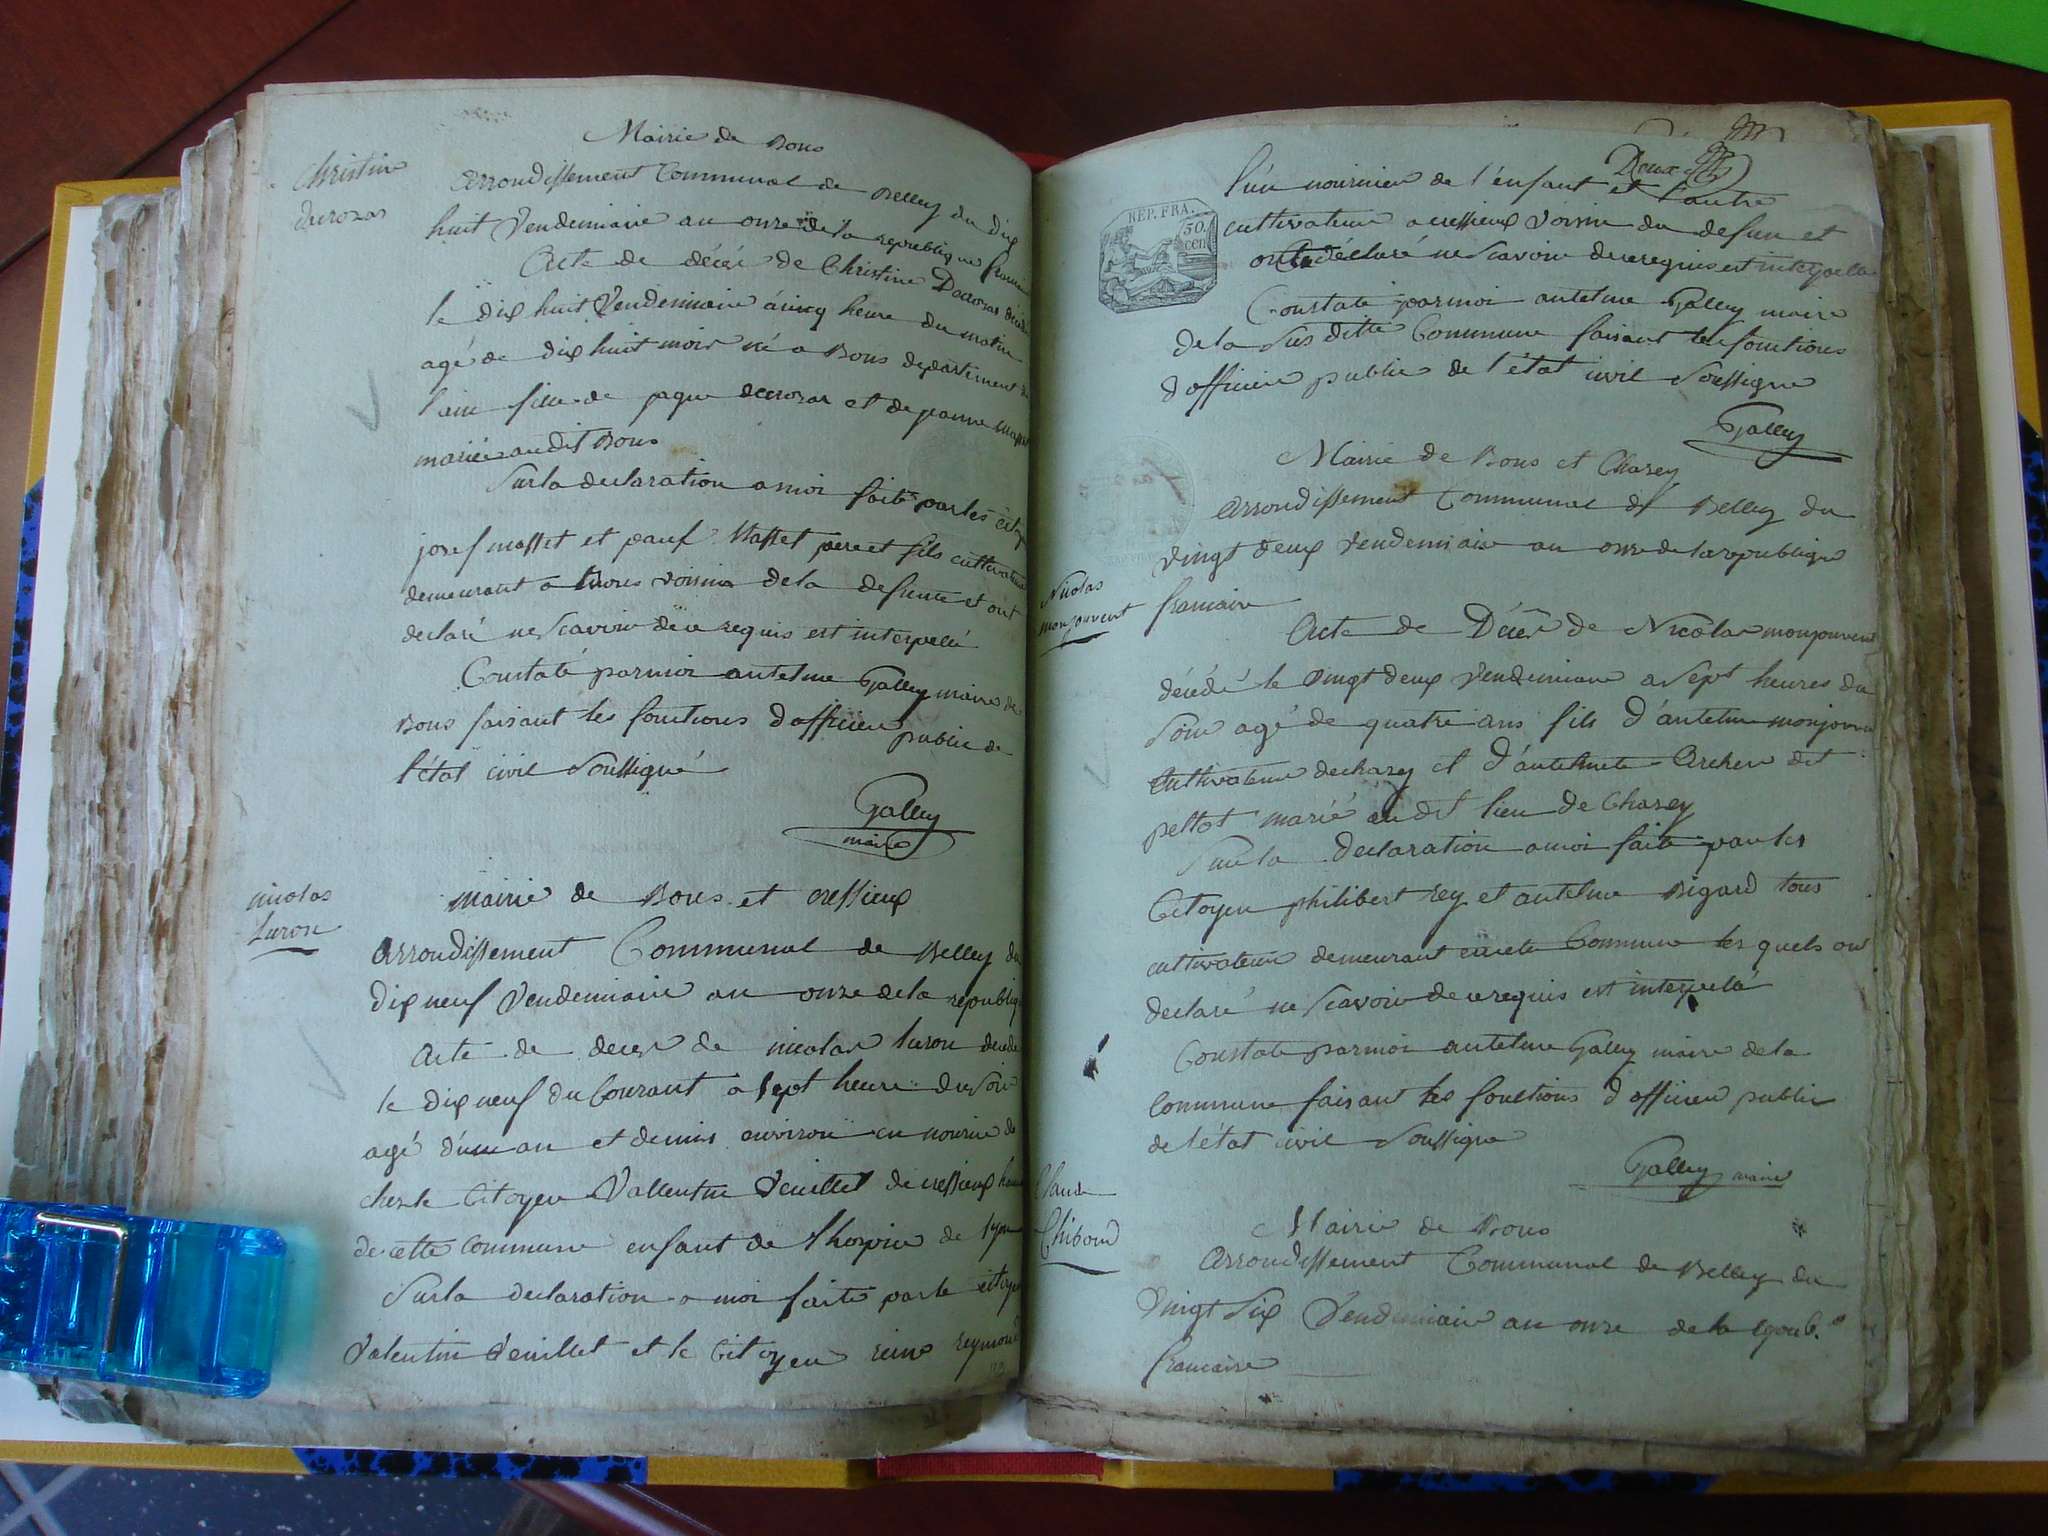 Mairie de Bons
Christine
Ducrozas
Arrondissement Communal de Belley du dix
huit Vendemiaire an onze de la republique francaise
Acte de décès de Christine Decrozas décédé
le dix huit Vendemiaire a cinq heure du matin
agé de dix huit mois né a Bons departement de
l'ain fille de jaque decrozas et de jeanne masset
mariés audit Bons
Sur la declaration a moi faite par les citoy
josef masset et Masset pere et fils cultivateurs
demeurant a Bons voisins de la defunte et ont
declaré ne scavoir de ce requis est interpellé
Constaté par moi antelme Galley maire de
Bons faisant les fonctions d'officier public de
l'état civil soussigné
Galley
maire
nicolas
luron
mairie de Bons et cressieux
Arrondissement Communal de Belley du
dix neuf Vendemiaire an onze de la republiq
Acte de deces de nicolas luron décédé
le dix neuf du Courant a sept heure du soir
agé d'un an et demis environ en nourice de
chez le Citoyen Vallentin Veuillet de cressieux
de cette commune enfant de l'hospice de lyon
Sur la declaration a moi faite par le citoye
Valentin Veuillet et le Citoyen reymond
Deux
l'un nourricier de l'enfant et l'autre
REP. FRA.
50.
cen
cultivateur a cressieux voisin du defun et
ont déclaré ne scavoir de ce requis est interpellé
Constaté par moi antelme Galley maire
de la susditte Commune faisant les fonctions
d'officier public de l'état civil soussigné
Galley
Mairie de Bons et Chazey
Arrondissement Communal de Belley du
vingt deux vendemiaire an onze de la republique
francaise
Nicolas
monjouvent
Acte de Décès de Nicolas monjouvent
décédé le vingt deux vendemiaire a sept heures du
soir agé de quatre ans fils d'antelme monjouven
cultivateur de chazey et d'antelmete Archer dit
peltot marié audit lieu de Chazey
Sur la declaration a moi faite par les
Citoyen philibert rey et antelme Bigard tous
cultivateur demeurant en cete Commune les quels ont
declaré ne scavoir de ce requis est interpelé
Constaté par moi antelme Galley maire de la
Commune faisant les fonctions d'officier public
de l'état civil soussigné
Galley maire
Claude
Chiboud
Mairie de Bons
Arrondissement Communal de Belley du
vingt six Vendemiaire an onze de la repub.
francaise